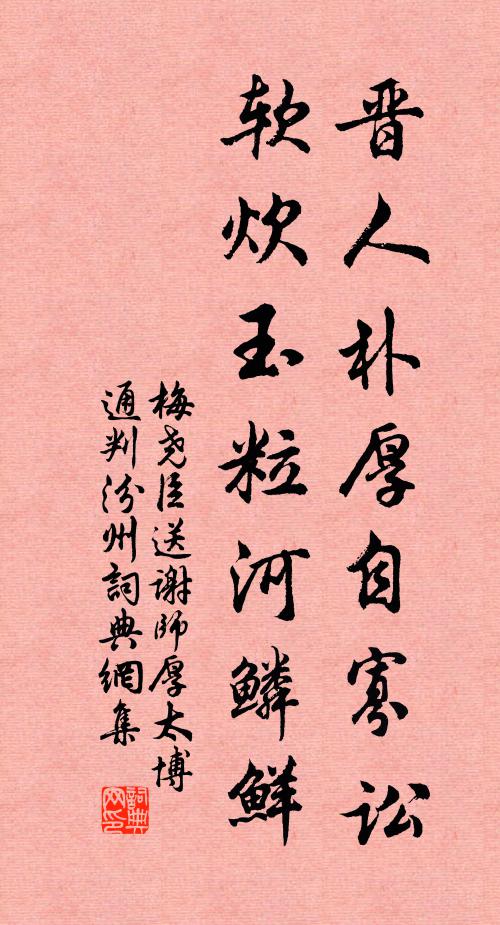 晋人朴厚自寡讼
软炊玉粒河鳞鲜
梅尧臣送谢師厚太博
通判汾州詞典網集
詞典
网印